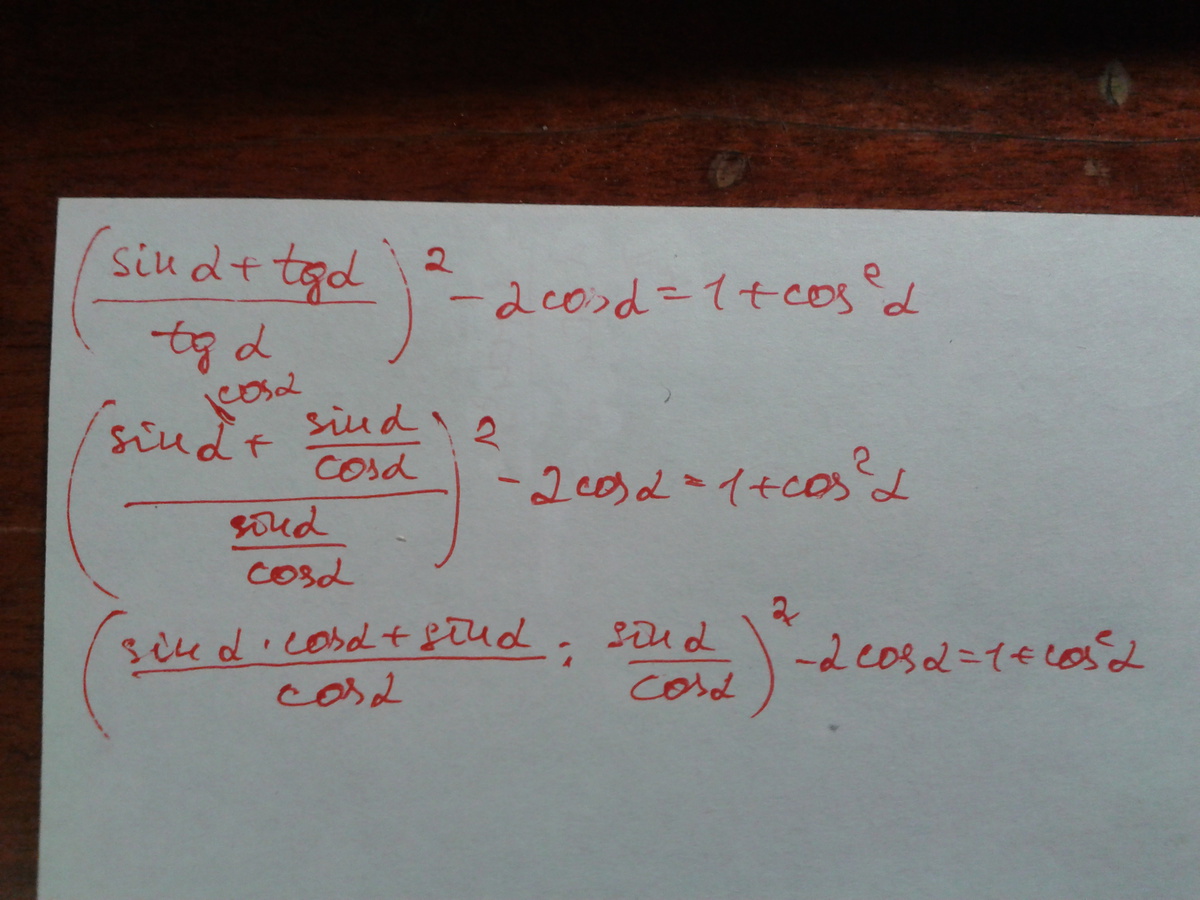 (sin α + tg α / tg α)² - 2 cos α = 1 + cos² α
(sin α \cos α + sin α / cos α / sin α / cos α)² - 2 cos α = 1 + cos² α
(sin α · cos α + sin α / cos α : sin α / cos α)² - 2 cos α = 1 + cos² α